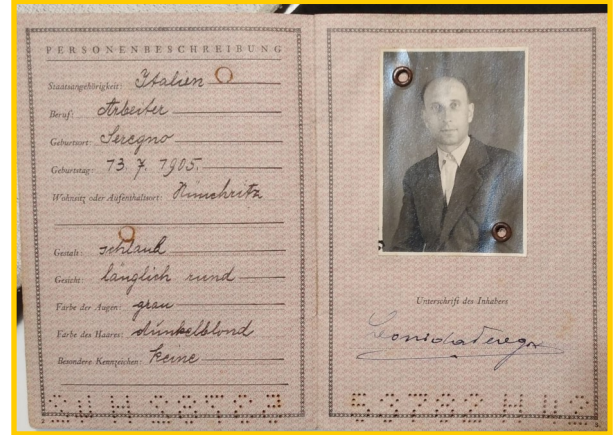 PERSONENBESCHREIBUNG
Staatsangehörigkeit: Italien
Beruf: Arbeiter
Geburtsort: Seregno
Geburtstag: 13. 7. 1905.
Wohnsitz oder Aufenthaltsort: Nünchritz
Gestalt: schlank
Gesicht: länglich rund
Farbe der Augen: grau
Farbe des Haares: dunkelblond
Besondere Kennzeichen: keine
Unterschrift des Inhabers